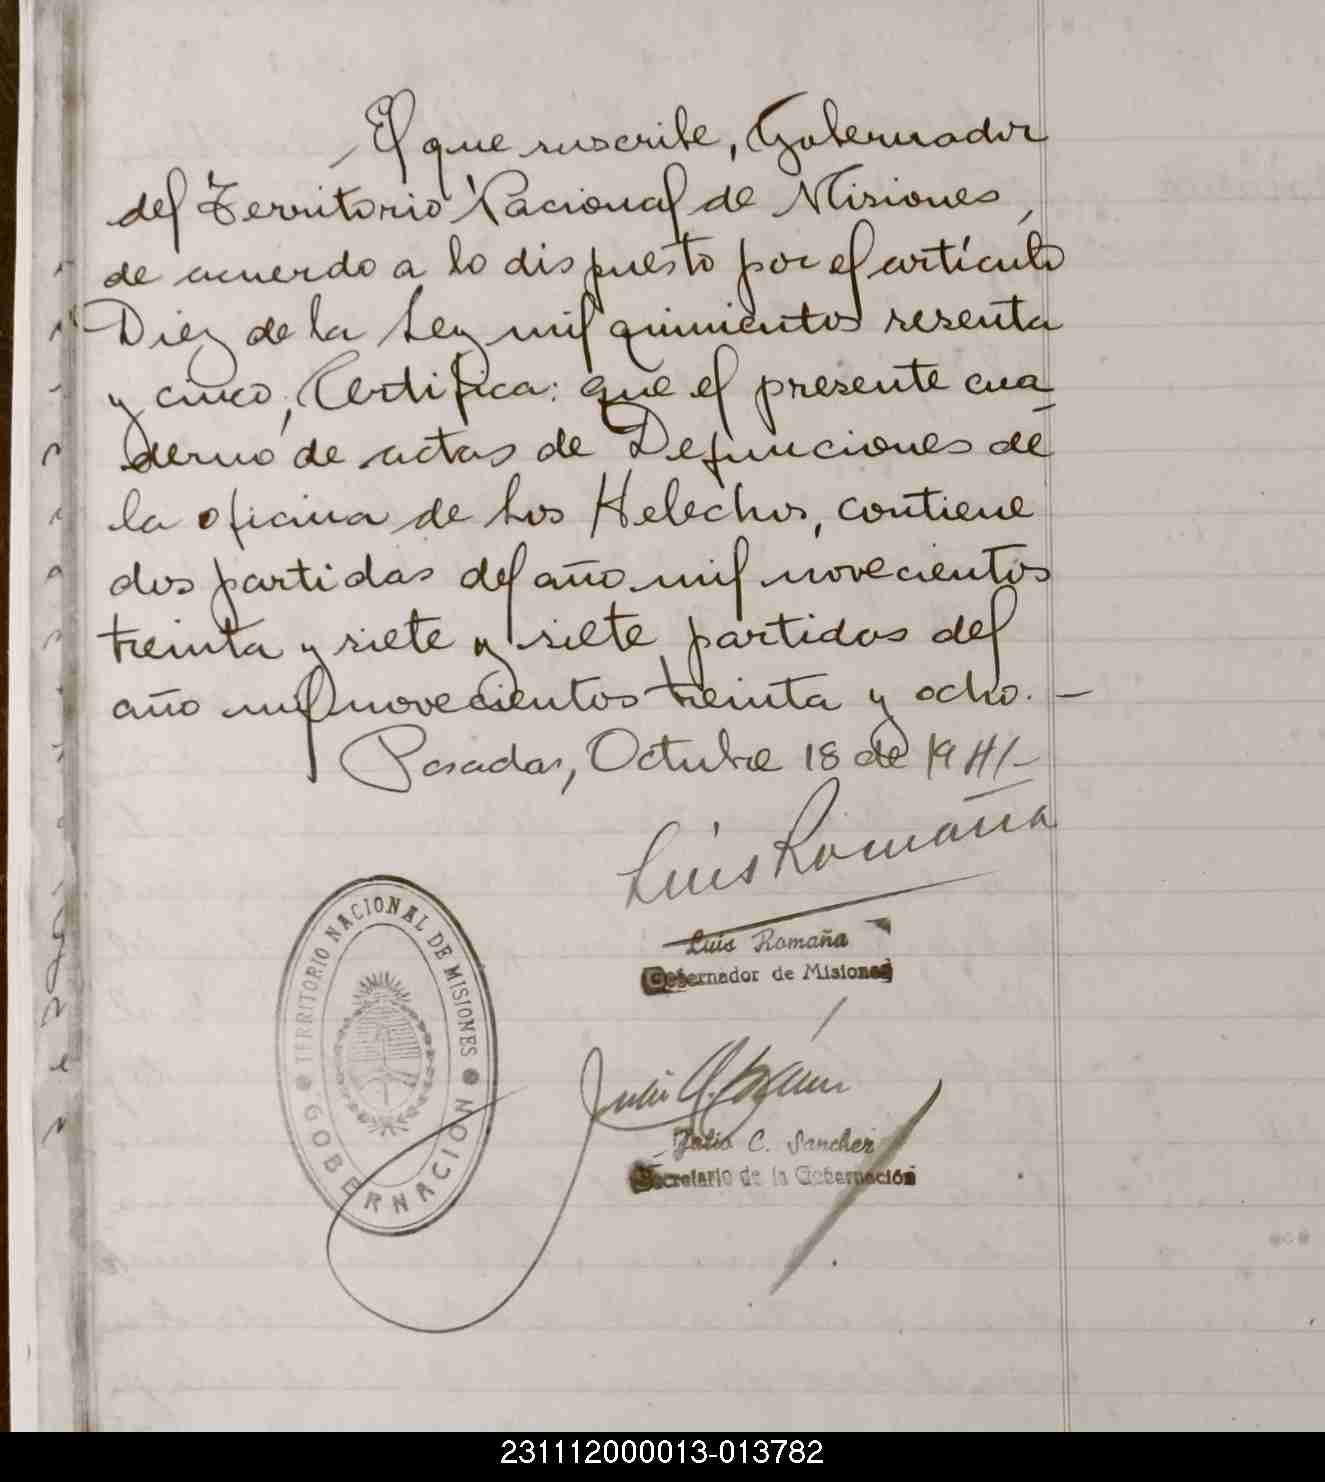 El que suscribe, Gobernador
del Territorio Nacional de Misiones,
de acuerdo a lo dispuesto por el artículo
Diez de la Ley mil quinientos sesenta
y cinco, Certifica: que el presente cua
derno de actas de Defunciones de
la oficina de Los Helechos, contiene
dos partidas del año mil novecientos
treinta y siete y siete partidas del
año mil novecientos treinta y ocho. —
Posadas, Octubre 18 de 1941-
Luis Romaña
Luis Romaña
Gobernador de Misiones
TERRITORIO NACIONAL DE MISIONES
GOBERNACION
Julio C. Sanchez
Secretario de la Gobernación
231112000013-013782